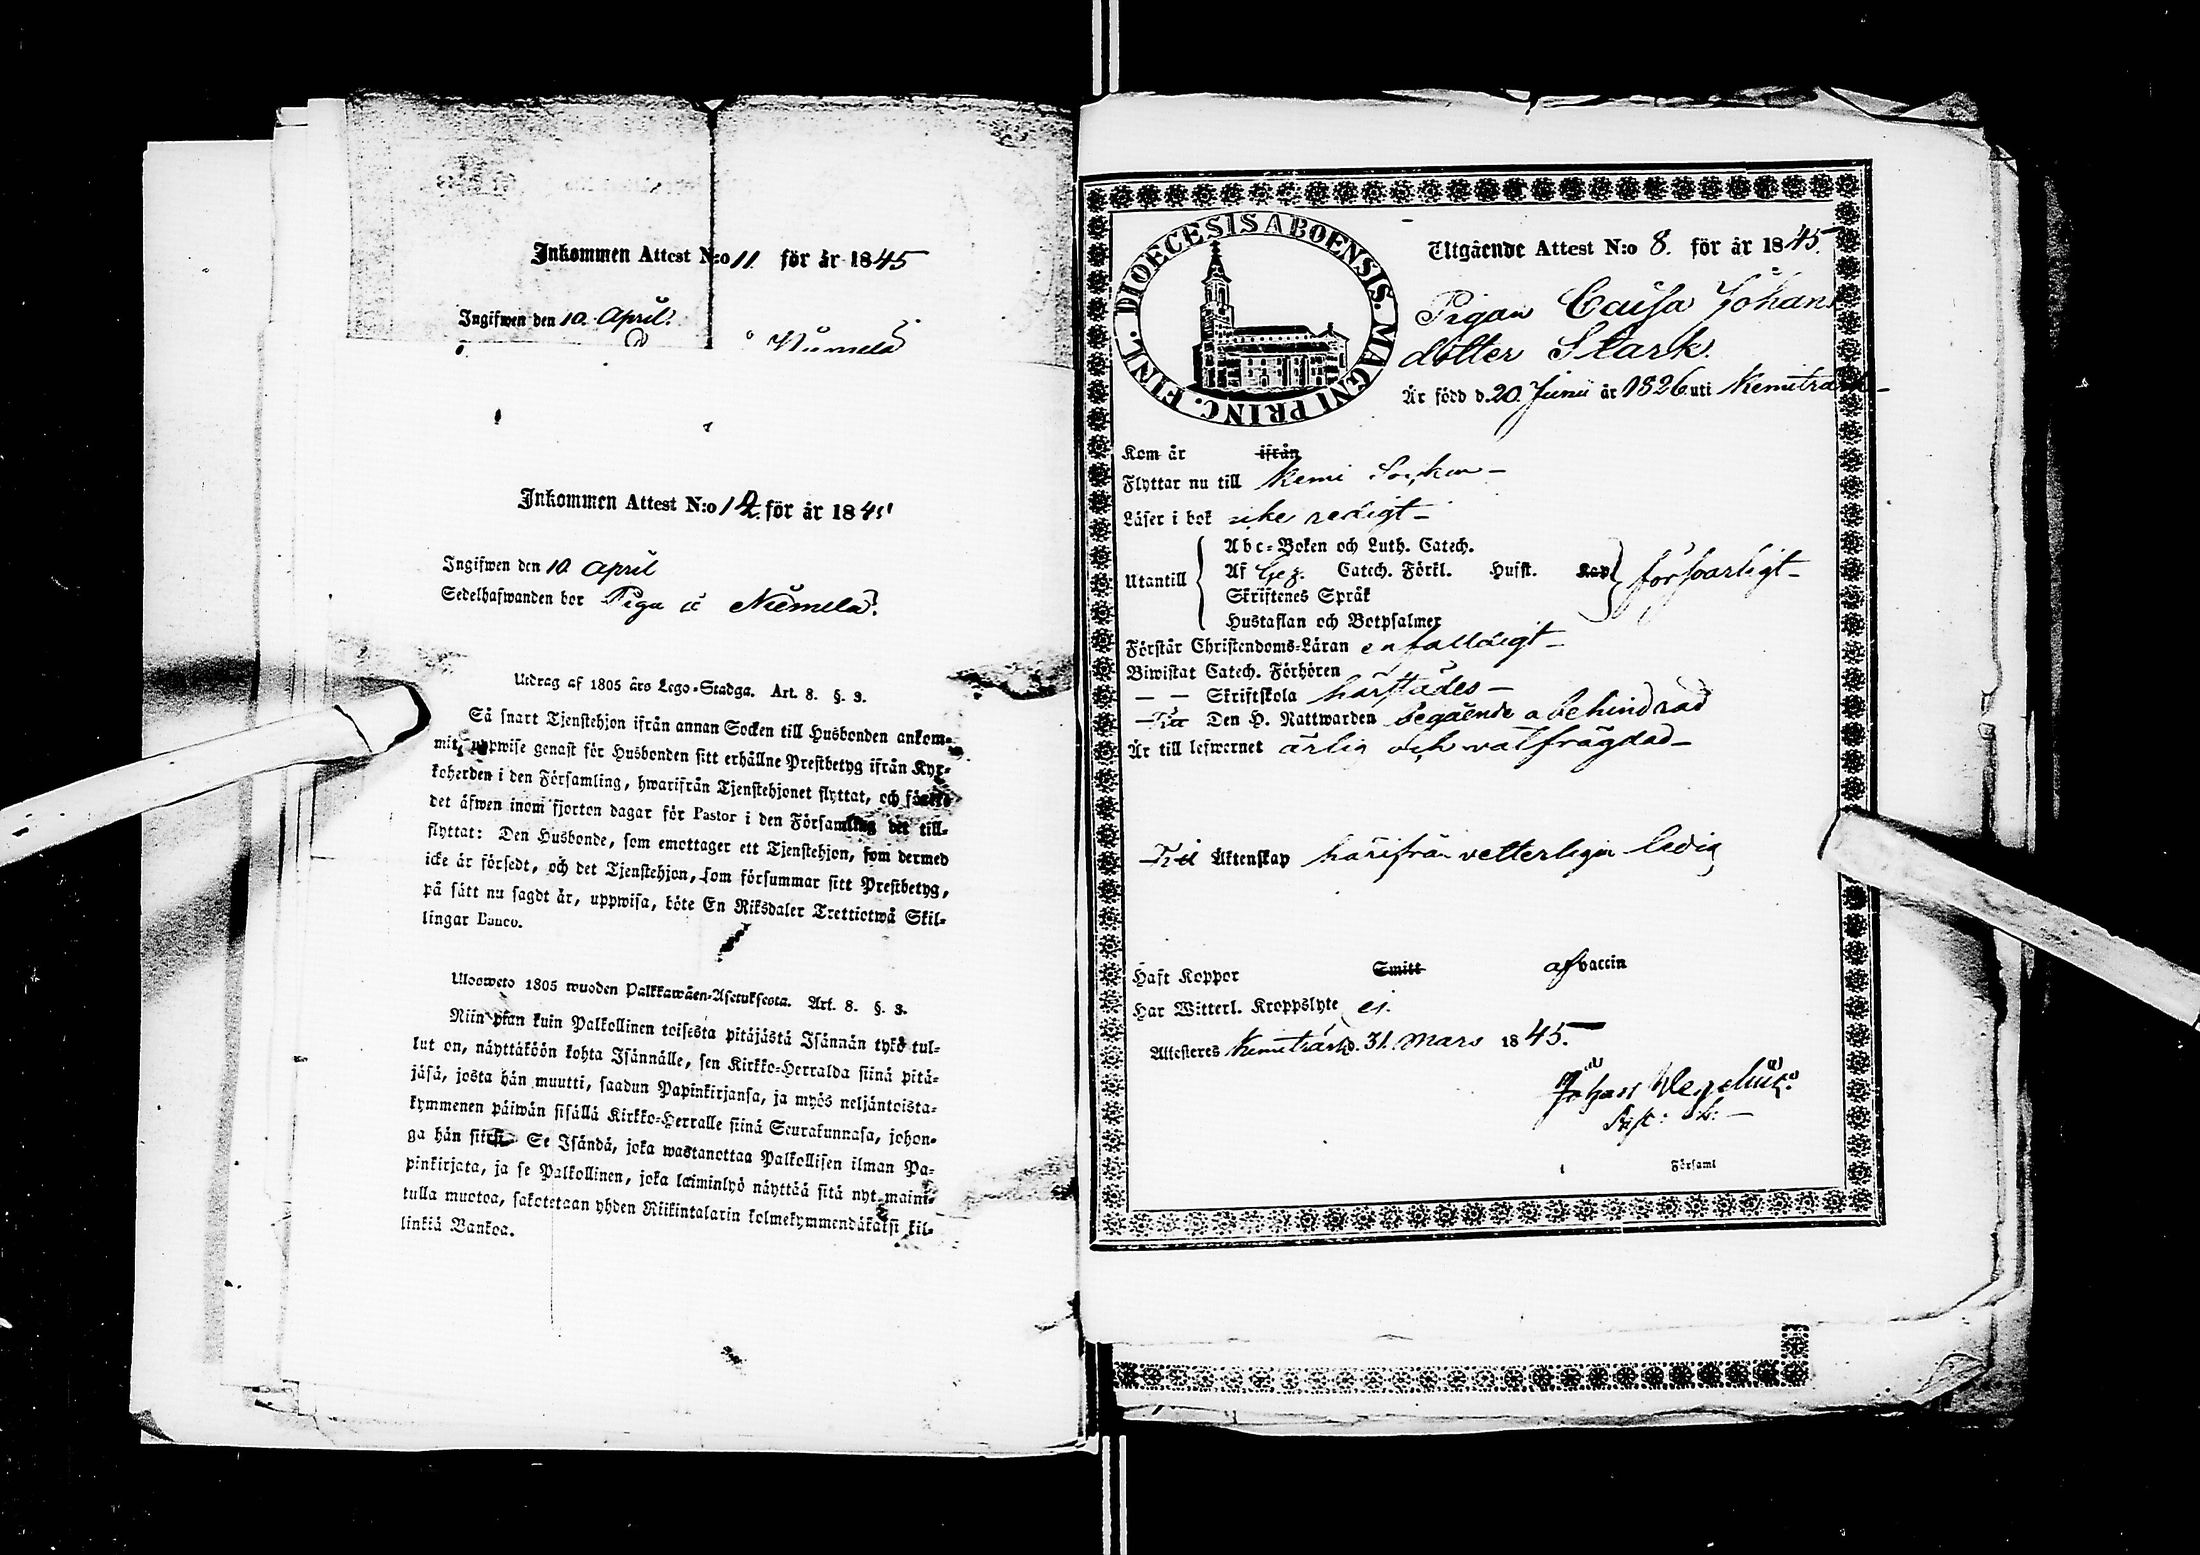 Inkommen Attest N:o 11. för år 1845
Ingifwen den 10. April.
Niemelä
Inkommen Attest N:o 12. för år 1845
Ingifwen den 10 April
Sedelhafwanden bor Piga å Niemelä.
Utdrag af 1805 års Lego-Stadga. Art. 8. §. 3.
Så snart Tjenstehjon ifrån annan Socken till Husbonden ankom-
mit, uppwise genast för Husbonden sitt erhållne Prestbetyg ifrån Kyr-
koherden i den Församling, hwarifrån Tjenstehjonet flyttat, och förete
det äfwen inom fjorton dagar för Pastor i den Församling det till-
flyttat: Den Husbonde, som emottager ett Tjenstehjon, som dermed
icke är försedt, och det Tjenstehjon, som försummar sitt Prestbetyg,
på sätt nu sagdt är, uppwisa, böte En Riksdaler Trettiotwå Skil-
lingar Banco.
Ulosweto 1805 wuoden Palkkawäen-Asetuksesta. Art. 8. §. 3.
Niin pian kuin Palkollinen toisesta pitäjästä Isännän tykö tul-
lut on, näyttäköön kohta Isännälle, sen Kirkko-Herralda siinä pitä-
jäsä, josta hän muutti, saadun Papinkirjansa, ja myös neljäntoista-
kymmenen päiwän sisällä Kirkko-Herralle siinä Seurakunnasa, johon-
ga hän siirsi. Se Isändä, joka wastanottaa Palkollisen ilman Pa-
pinkirjata, ja se Palkollinen, joka laiminlyö näyttää sitä nyt maini-
tulla muotoa, sakotetaan yhden Riikintalarin kolmekymmendäkaksi kil-
linkiä Bankoa.
DIOECESIS ABOENSIS. MAGNI PRINC. FINL.
Utgående Attest N:o 8. för år 1845.
Pigan Caisa Johans
dotter Stark.
Är född d. 20. Junii år 1826 uti Kemiträsk
Kom år ifrån
Flyttar nu till Kemi Socken
Läser i bok icke redigt
Utantill
Abc-Boken och Luth. Catech.
Af Catech. Förkl. Hufst. Kap
Skriftenes Språk
Hustaflan och Botpsalmer
försvarligt
Förstår Christendoms-Läran enfaldigt
Biwistat Catech. Förhören
— — Skriftskola härstädes
Den H. Nattwarden begående obehindrad
Är till lefwernet ärlig och välfrägdad
Till Äktenskap härifrån vetterligen ledig
Haft Koppor Smitt af vaccin
Har Witterl. Kroppslyte ej.
Attesteras Kemiträsk d. 31. Mars 1845.
Johan Wegelius
Församl